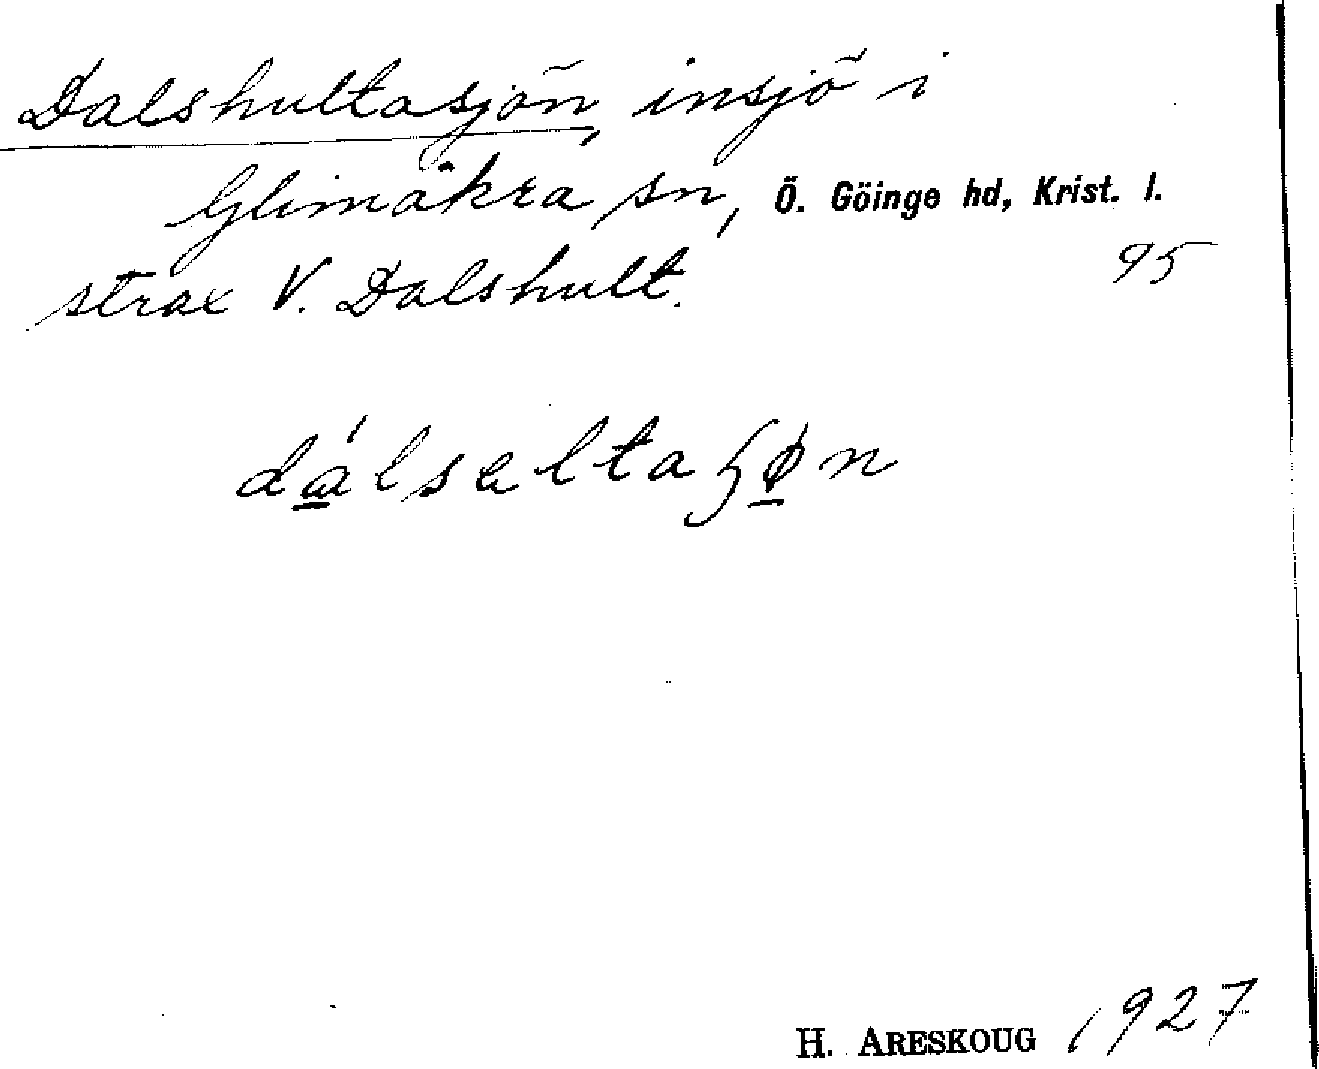 Dalshultasjön, insjö i
Glimåkra sn, Ö. Göinge hd, Krist. l.
strax V. Dalshult. 95
H. ARESKOUG 1927